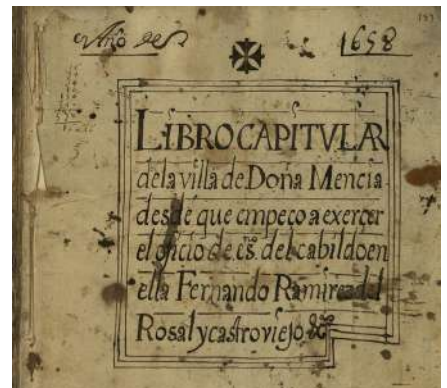 Año de
1658
LIBRO CAPITVLAR
de la villa de Doña Mencia
desde que empeço a exerçer
el oficio de es.º del cabildo en
ella Fernando Ramirez del
Rosal y castroviejo &c